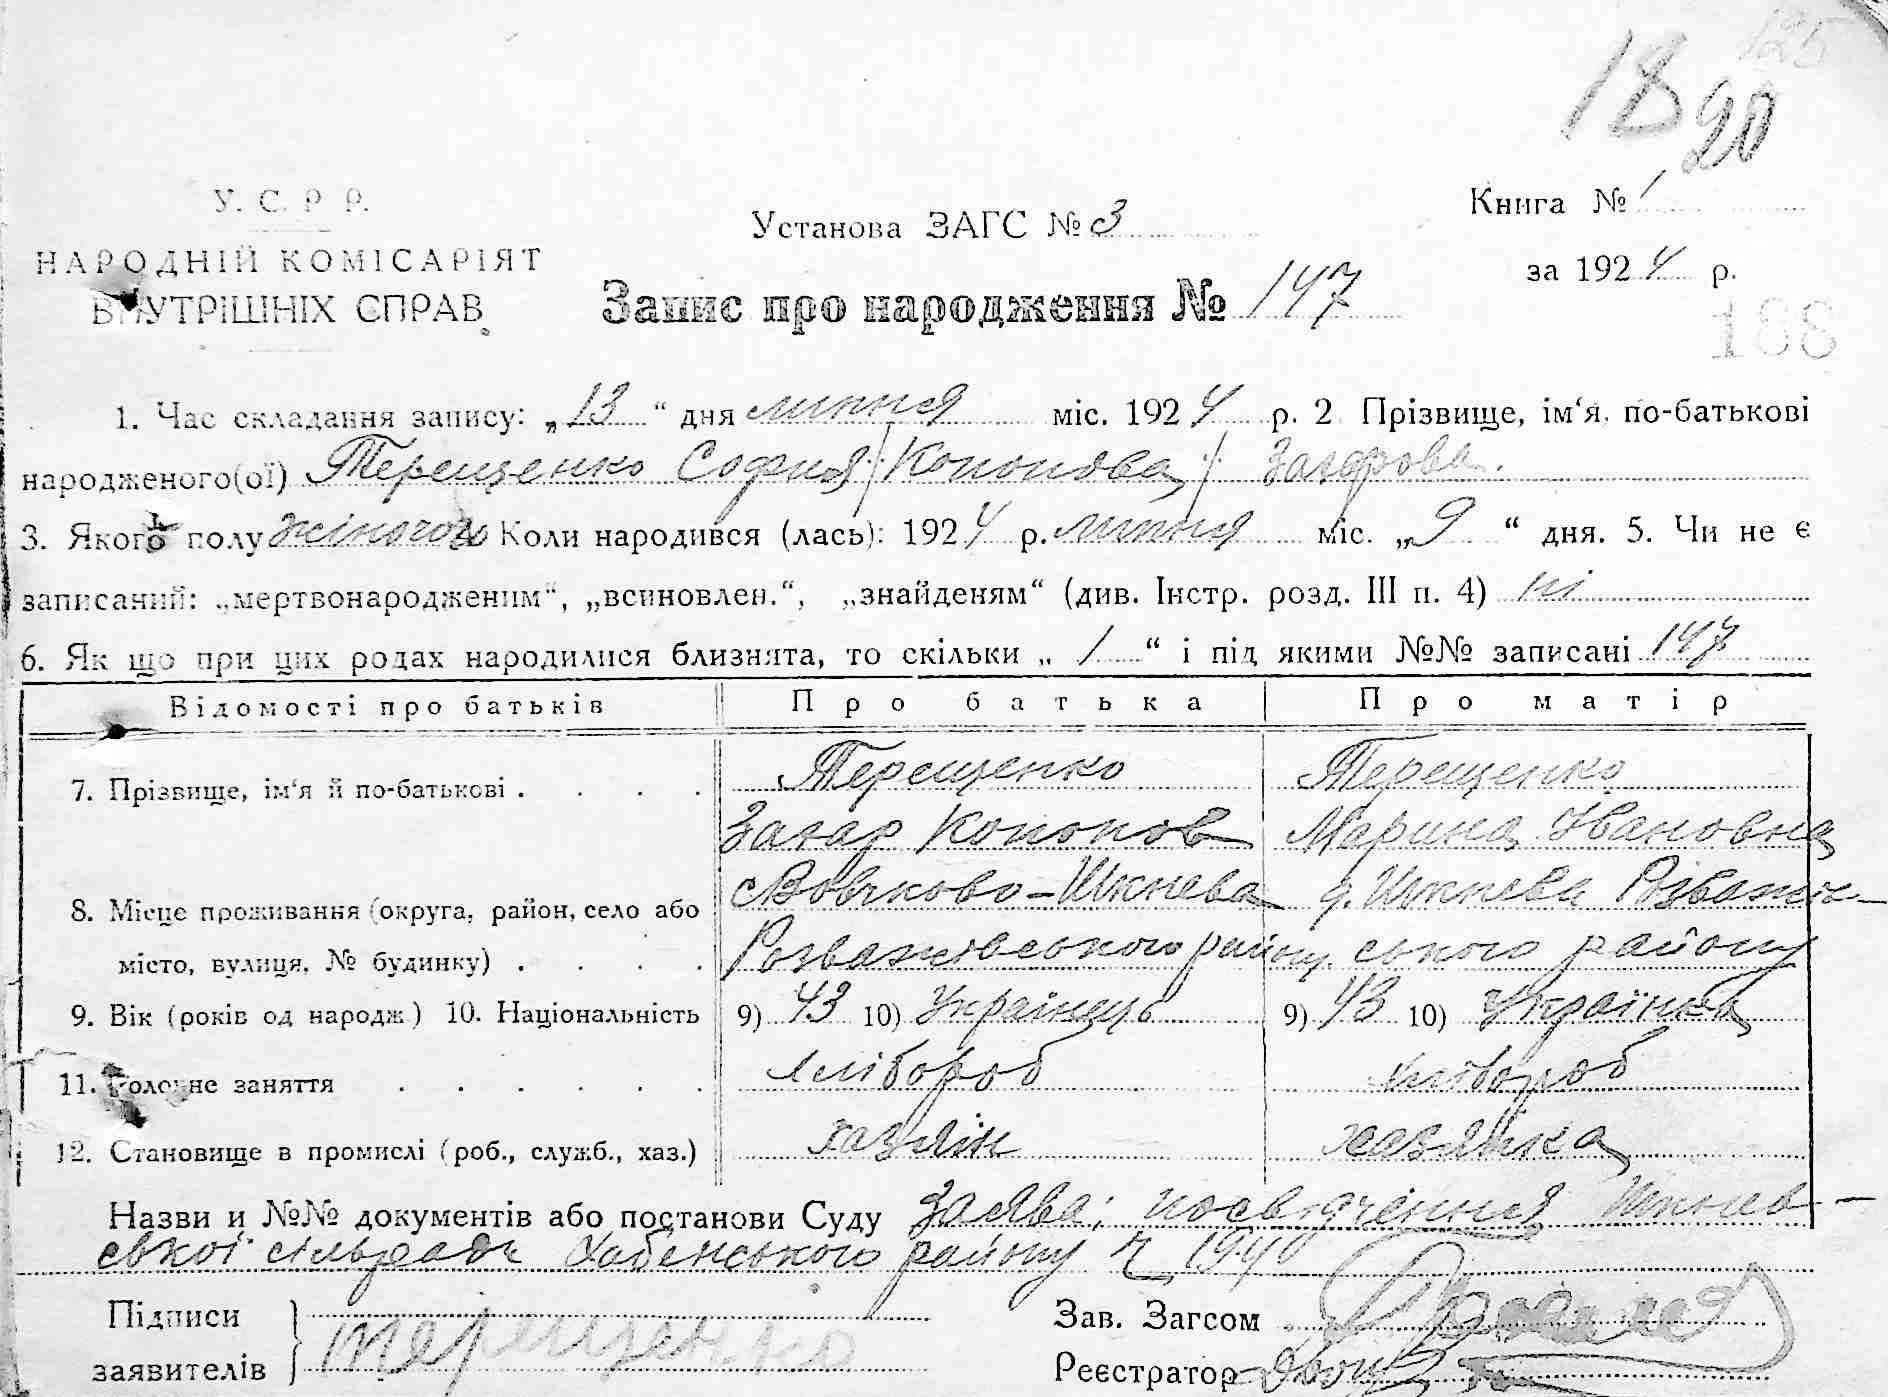 125
18 90
У. С. Р. Р.
НАРОДНІЙ КОМІСАРІЯТ
ВНУТРІШНІХ СПРАВ
Установа ЗАГС № 3
Книга № 1
за 1924 р.
Запис про народження № 147
188
1. Час складання запису: „13“ дня липня міс. 1924 р. 2 Прізвище, ім‘я, по-батькові
народженого(ої) Терещенко София /Кононова/ Захарова.
3. Якого полу жіночого Коли народився (лась): 1924 р. липня міс. „9“ дня. 5. Чи не є
записаний: „мертвонародженим“, „всиновлен.“, „знайденям“ (див. Інстр. розд. III п. 4) ні
6. Як що при цих родах народилися близнята, то скільки „1“ і під якими №№ записані 147
Відомості про батьків Про батька Про матір
7. Прізвище, ім‘я й по-батькові . . . . Терещенко Терещенко
Захар Кононов Марина Івановна
8. Місце проживання (округа, район, село або с Вовчково-Шкнева д. Шкнева Розважів-
місто, вулиця, № будинку) . . . . Розважівського району ського району
9. Вік (років од народж) 10. Національність 9) 43 10) Українець 9) 43 10) Українка
11. Головне заняття . . . . . . Хлібороб Хлібороб
12. Становище в промислі (роб., служб., хаз.) хазяїн хазяйка
Назви и №№ документів або постанови Суду Заява; посвідчення
ської сільради Хабенського району
Підписи
заявителів } Терещенко
Зав. Загсом
Реєстратор